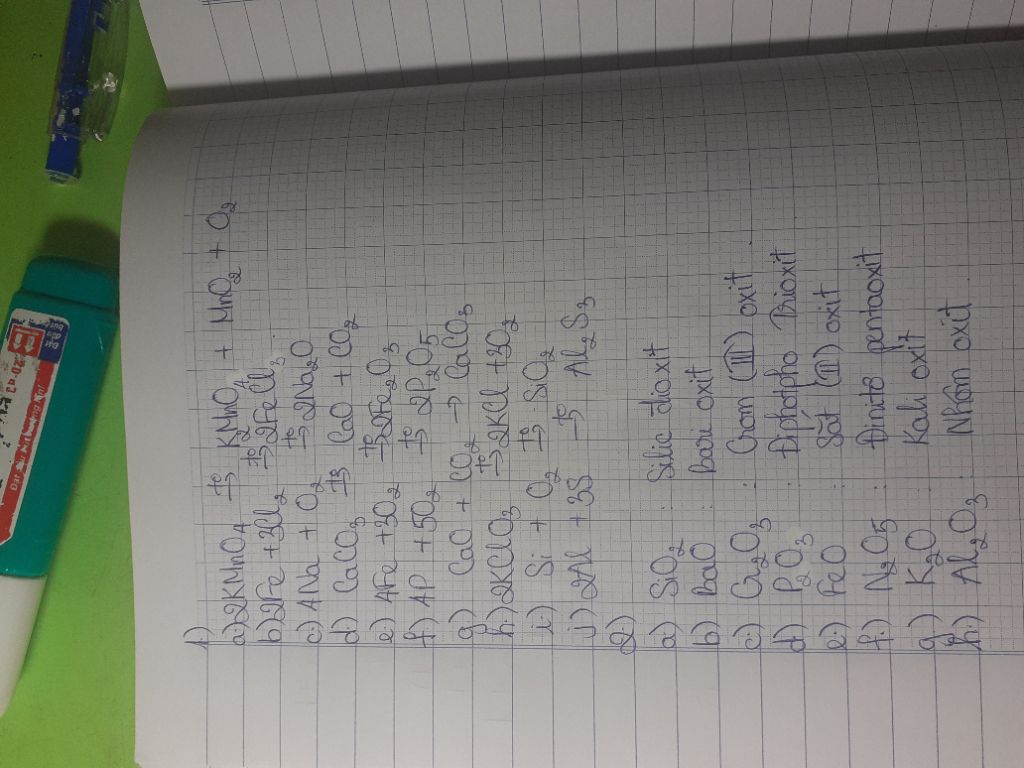 1)
a) 2KMnO₄ →t° K₂MnO₄ + MnO₂ + O₂
b) 2Fe + 3Cl₂ →t° 2FeCl₃
c) 4Na + O₂ →t° 2Na₂O
d) CaCO₃ →t° CaO + CO₂
e) 4Fe + 3O₂ →t° 2Fe₂O₃
f) 4P + 5O₂ →t° 2P₂O₅
g) CaO + CO₂ → CaCO₃
h) 2KClO₃ →t° 2KCl + 3O₂
i) Si + O₂ →t° SiO₂
j) 2Al + 3S →t° Al₂S₃
2)
a) SiO₂ : Silic dioxit
b) BaO : Bari oxit
c) Cr₂O₃ : Crom (III) oxit
d) P₂O₃ : Điphotpho trioxit
e) FeO : Sắt (II) oxit
f) N₂O₅ : Đinitơ pentaoxit
g) K₂O : Kali oxit
h) Al₂O₃ : Nhôm oxit